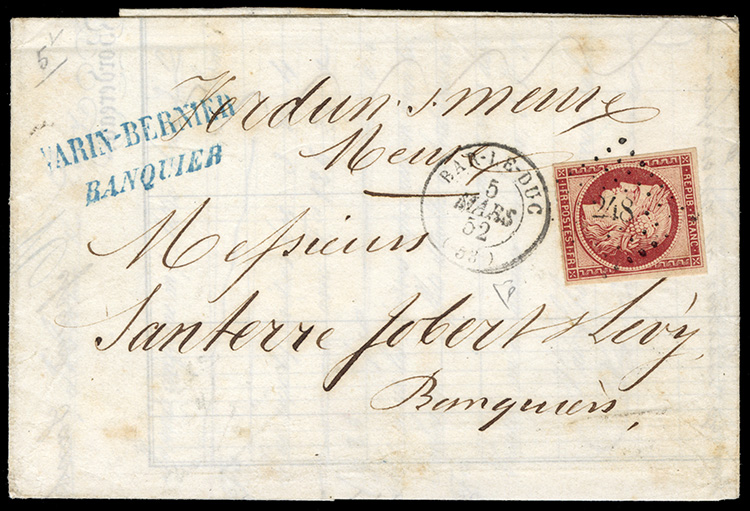 5
Verdun s/meuse
VARIN-BERNIER
BANQUIER
Meuse
BAR-LE-DUC
5
MARS
52
(53)
REPUB.FRANC.
1FR.POSTES.1FR
248
Messieurs
Santerre Jobert & Levy,
Banquiers,
Bordereau